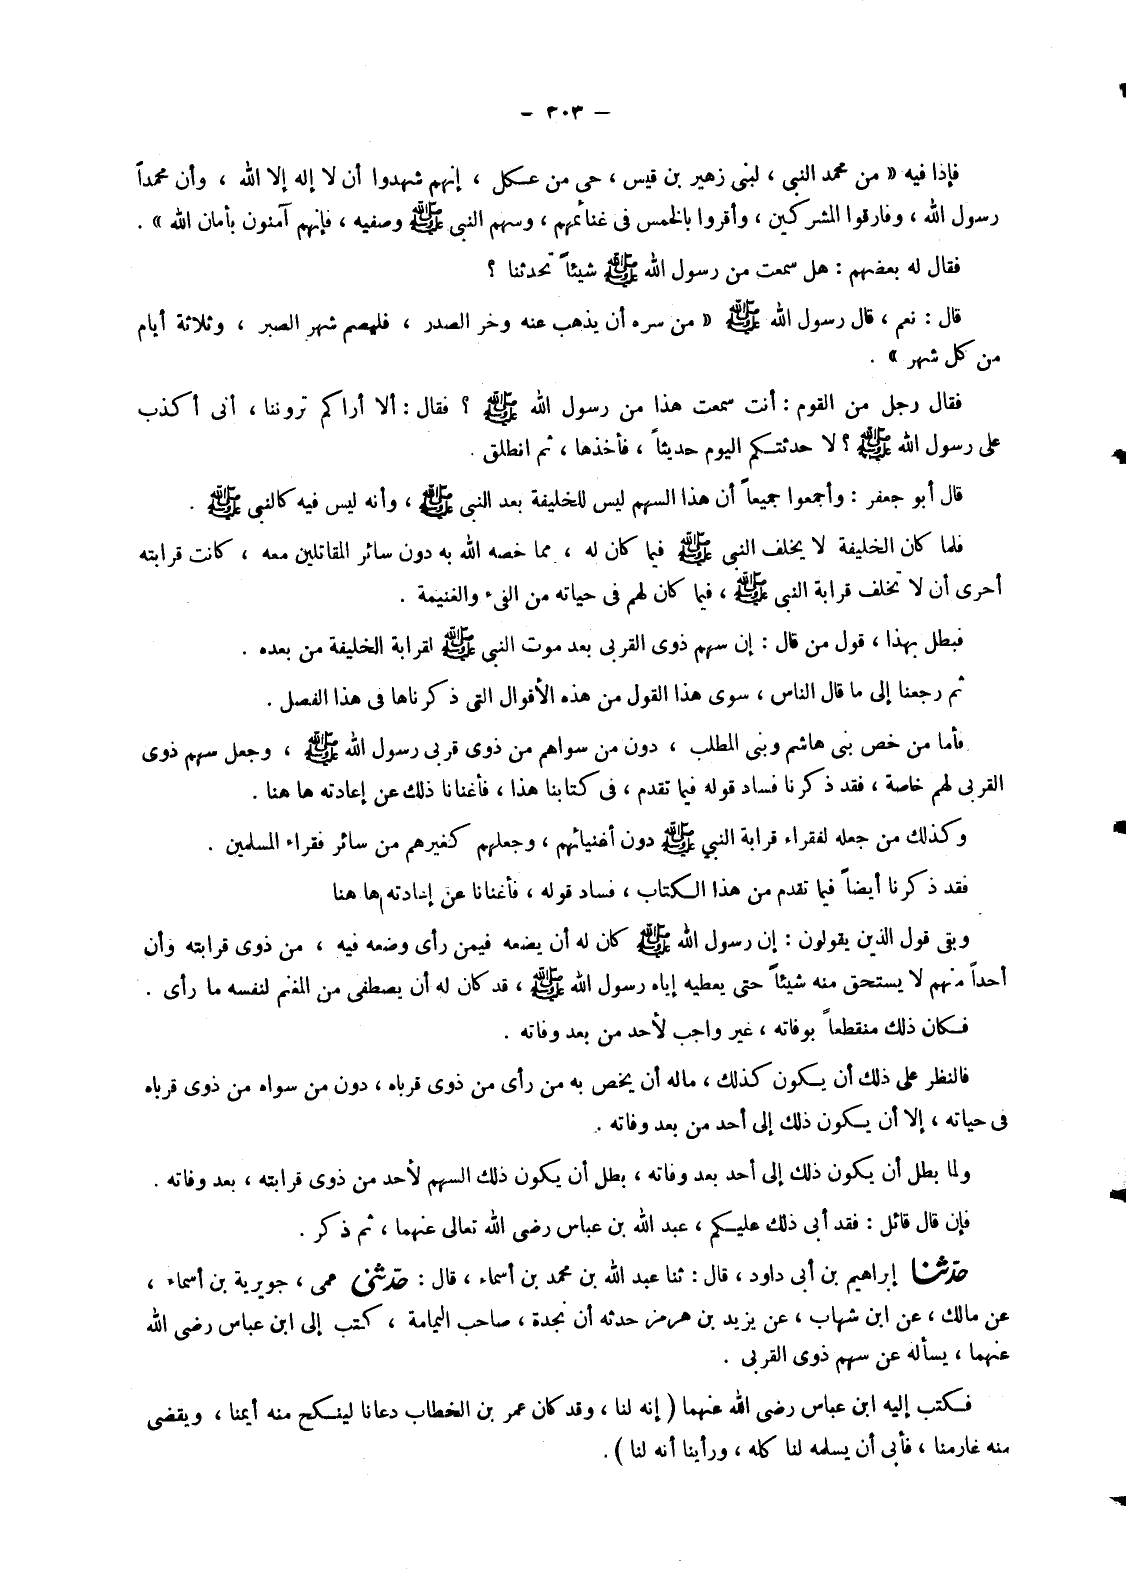 — ٣٠٣ —
فإذا فيه « من محمد النبى ، لبنى زهير بن قيس ، حى من عكل ، إنهم شهدوا أن لا إله إلا الله ، وأن محمداً
رسول الله ، وفارقوا المشركين ، وأقروا بالخمس فى غنائمهم ، وسهم النبى ﷺ وصفيه ، فإنهم آمنون بأمان الله » .
فقال له بعضهم : هل سمعت من رسول الله ﷺ شيئاً تحدثنا ؟
قال : نعم ، قال رسول الله ﷺ « من سره أن يذهب عنه وخر الصدر ، فليصم شهر الصبر ، وثلاثة أيام
من كل شهر » .
فقال رجل من القوم : أنت سمعت هذا من رسول الله ﷺ ؟ فقال : ألا أراكم تروننا ، أنى أكذب
على رسول الله ﷺ ؟ لا حدثتكم اليوم حديثاً ، فأخذها ، ثم انطلق .
قال أبو جعفر : وأجمعوا جميعاً أن هذا السهم ليس للخليفة بعد النبى ﷺ ، وأنه ليس فيه كالنبى ﷺ .
فلما كان الخليفة لا يخلف النبى ﷺ فيما كان له ، مما خصه الله به دون سائر المقاتلين معه ، كانت قرابته
أحرى أن لا تخلف قرابة النبى ﷺ ، فيما كان لهم فى حياته من الفىء والغنيمة .
فبطل بهذا ، قول من قال : إن سهم ذوى القربى بعد موت النبى ﷺ لقرابة الخليفة من بعده .
ثم رجعنا إلى ما قال الناس ، سوى هذا القول من هذه الأقوال التى ذكرناها فى هذا الفصل .
فأما من خص بنى هاشم وبنى المطلب ، دون من سواهم من ذوى قربى رسول الله ﷺ ، وجعل سهم ذوى
القربى لهم خاصة ، فقد ذكرنا فساد قوله فيما تقدم ، فى كتابنا هذا ، فأغنانا ذلك عن إعادته ها هنا .
وكذلك من جعله لفقراء قرابة النبي ﷺ دون أغنيائهم ، وجعلهم كغيرهم من سائر فقراء المسلمين .
فقد ذكرنا أيضاً فيما تقدم من هذا الكتاب ، فساد قوله ، فأغنانا عن إعادته ها هنا
وبقى قول الذين يقولون : إن رسول الله ﷺ كان له أن يضعه فيمن رأى وضعه فيه ، من ذوى قرابته وأن
أحداً منهم لا يستحق منه شيئاً حتى يعطيه إياه رسول الله ﷺ ، قد كان له أن يصطفى من المغنم لنفسه ما رأى .
فكان ذلك منقطعاً بوفاته ، غير واجب لأحد من بعد وفاته .
فالنظر على ذلك أن يكون كذلك ، ماله أن يخص به من رأى من ذوى قرباه ، دون من سواه من ذوى قرباه
فى حياته ، إلا أن يكون ذلك إلى أحد من بعد وفاته .
ولما بطل أن يكون ذلك إلى أحد بعد وفاته ، بطل أن يكون ذلك السهم لأحد من ذوى قرابته ، بعد وفاته .
فإن قال قائل : فقد أبى ذلك عليكم ، عبد الله بن عباس رضى الله تعالى عنهما ، ثم ذكر .
حدثنا إبراهيم بن أبى داود ، قال : ثنا عبد الله بن محمد بن أسماء ، قال : حدثنى عمى ، جويرية بن أسماء ،
عن مالك ، عن ابن شهاب ، عن يزيد بن هرمز حدثه أن نجدة ، صاحب اليمامة ، كتب إلى ابن عباس رضى الله
عنهما ، يسأله عن سهم ذوى القربى .
فكتب إليه ابن عباس رضى الله عنهما ( إنه لنا ، وقد كان عمر بن الخطاب دعانا لينكح منه أيمنا ، ويقضى
منه غارمنا ، فأبى أن يسلمه لنا كله ، ورأينا أنه لنا ) .